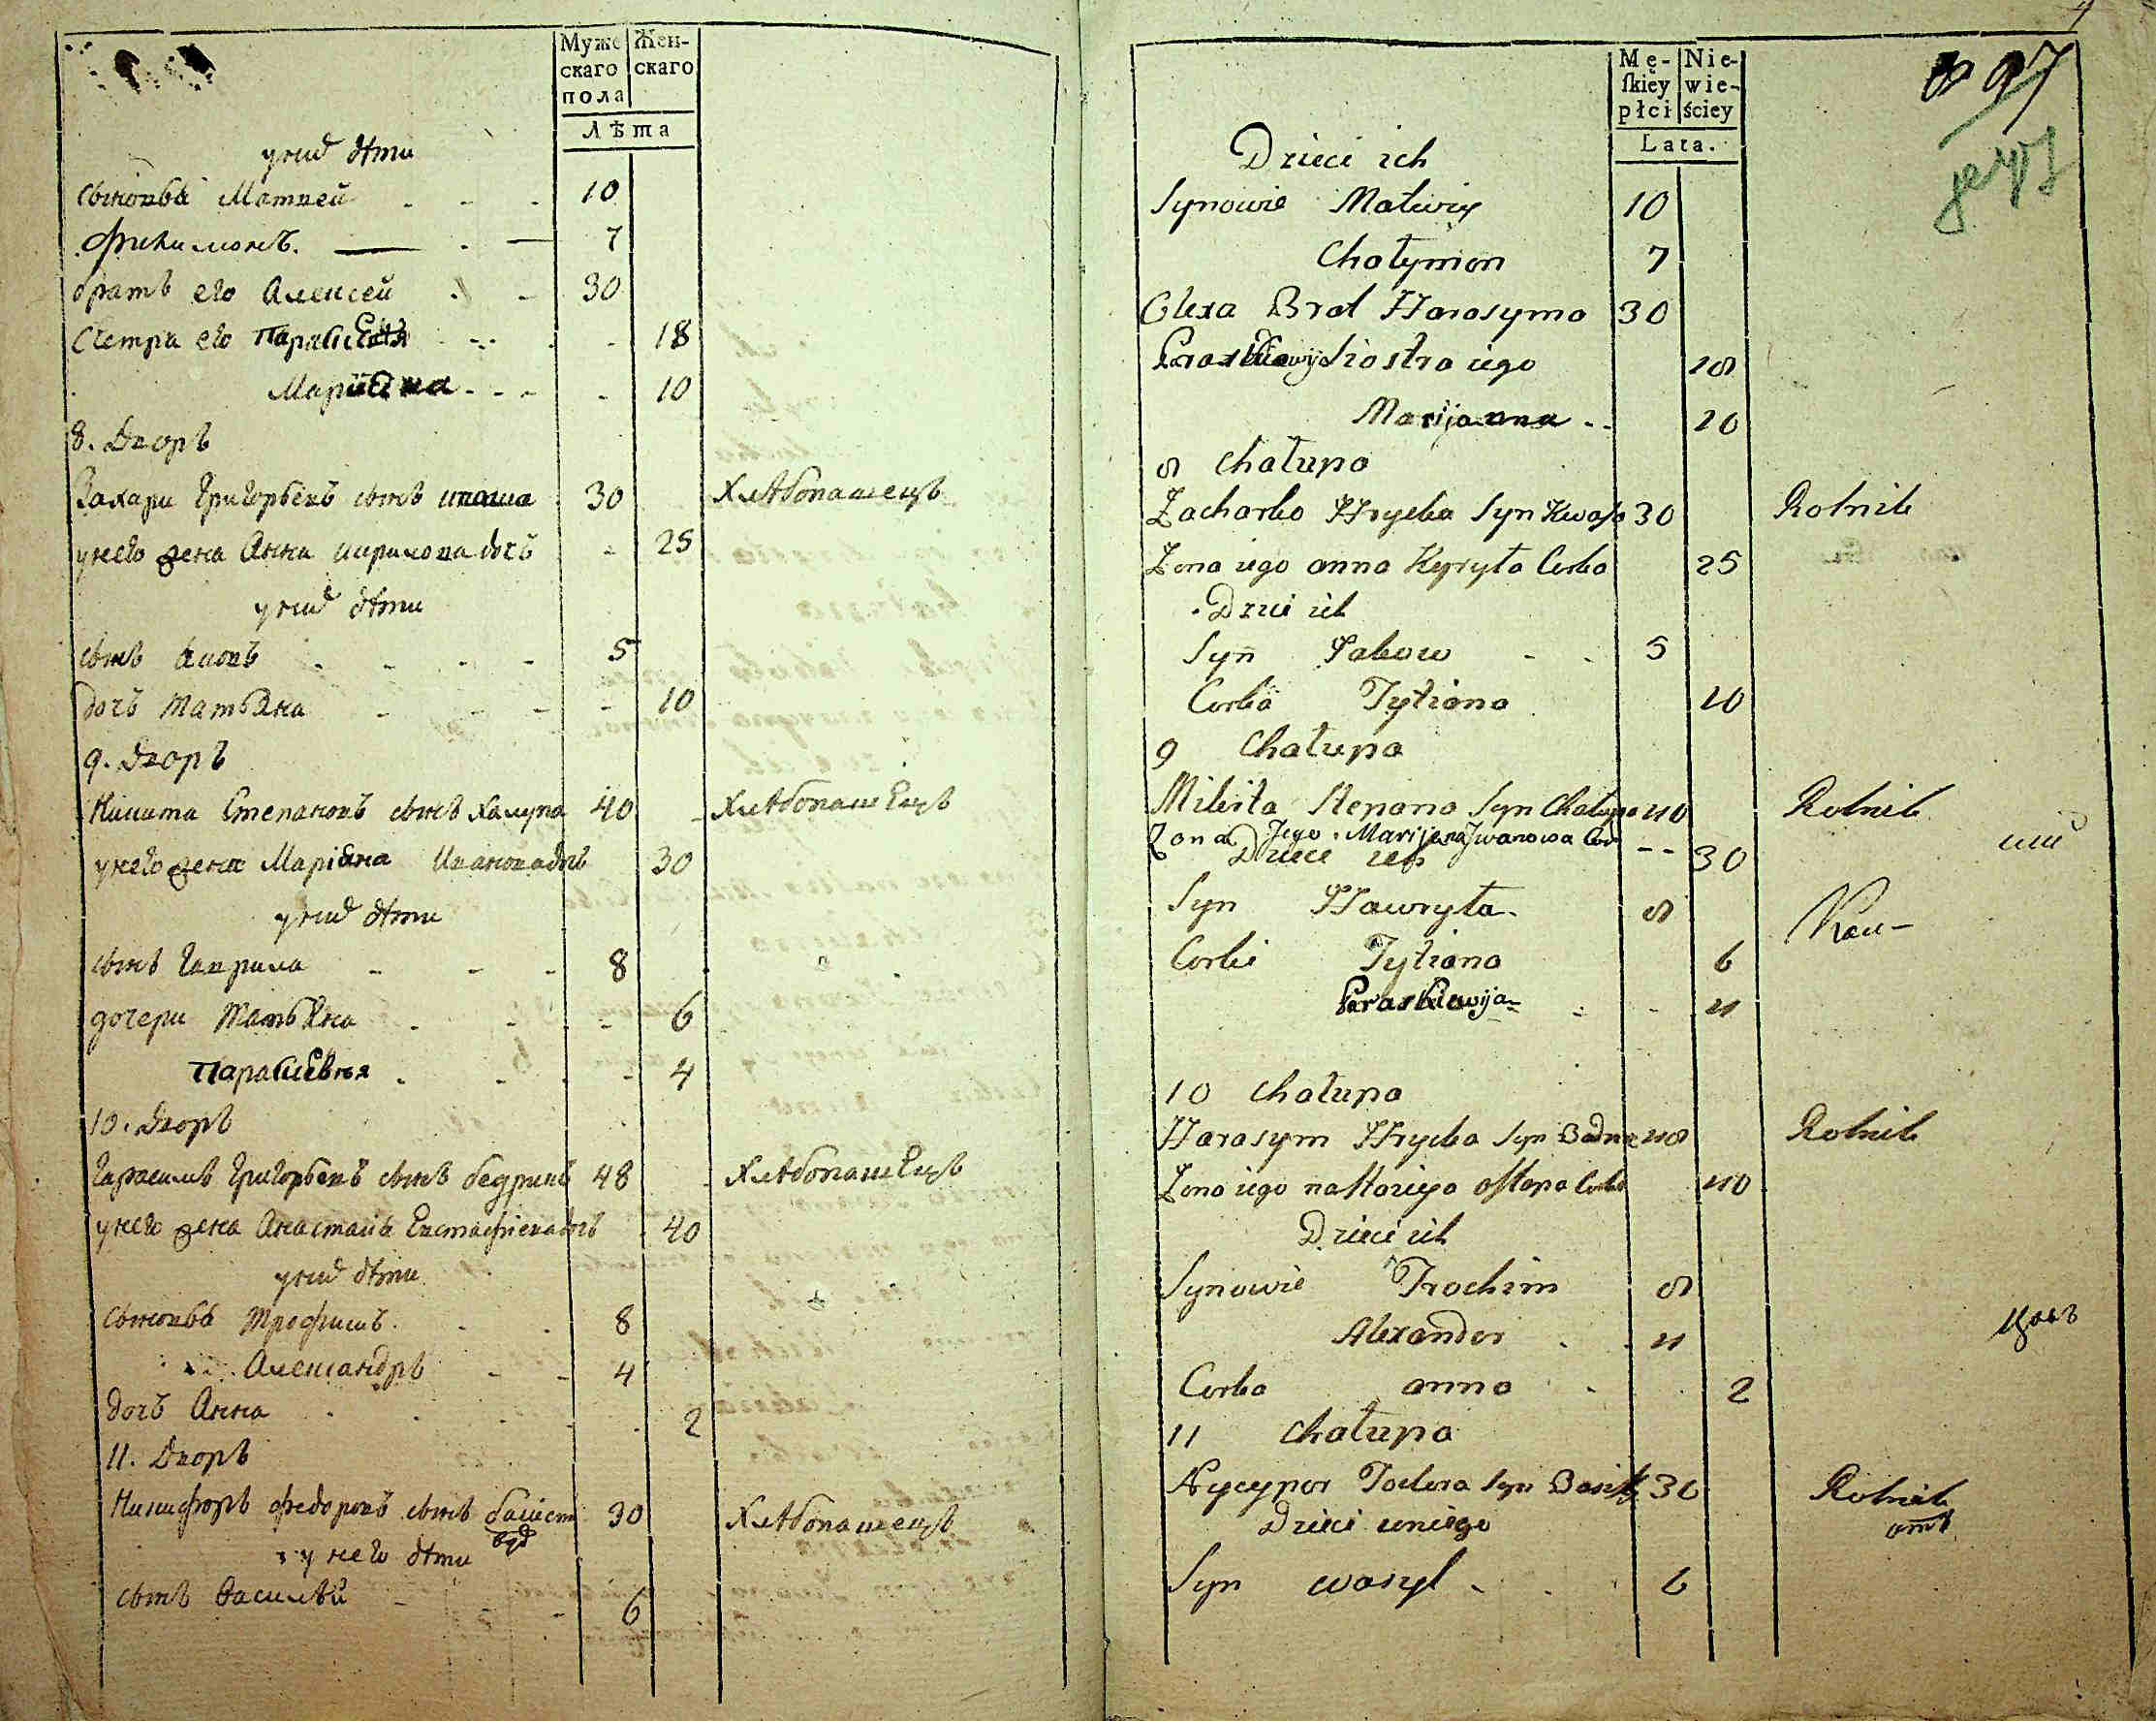 Муже
скаго
пола
Жен-
скаго
Лѣта
у нихъ дѣти
сыновья Матвей 10
Филимонъ 7
братъ его Алексей 30
Сестра его Параскевія 18
Маріана 10
8. Дворъ
Захари Григорьевъ сынъ кваша 30 Хлѣбопашецъ
у него жена Анна кирилова дочь 25
у нихъ дѣти
сынъ Яковъ 5
дочь Татьяна 10
9. Дворъ
Никита Степановъ сынъ халупа 40 Хлѣбопашецъ
у него жена Маріана Иванова дочь 30
у нихъ дѣти
сынъ Гаврила 8
дочери Татьяна 6
Параскевія 4
10. Дворъ
Гарасимъ Григорьевъ сынъ 48 Хлѣбопашецъ
у него жена Анастасія Евстафіева дочь 40
у нихъ дѣти
сыновья Трофимъ 8
Александръ 4
дочь Анна 2
11. Дворъ
Никифоръ Федоровъ сынъ 30 Хлѣбопашецъ
у него дѣти
сынъ Василѣй 6
4
97
Mę-
ſkiey
płci
Nie-
wie-
ściey
Lata.
Dzieci ich
Synowie Matwiy 10
Chołymon 7
Olexa Brat Harasyma 30
Paraskiewija Siostra iego 18
Marijanna 10
8 Chałupa
Zacharko Hrycka Syn Kwasza 30 Rolnik
Zona iego anna Kyryła Corka 25
Dzieci ich
Syn Jakow 5
Corka Tytiana 10
9 Chałupa
Mikita Stepana Syn Chałupa 40 Rolnik
Zona Jego Marijana Jwanowa Cor 30
Dzieci ich
Syn Hawryła 8
Corki Tytiana 6
Paraskiewija 4
10 Chałupa
Harasym Hrycka Syn 48 Rolnik
Zona iego nastasiya ostapa Corka 40
Dzieci ich
Synowie Trochim 8
Alexander 4
Corka anna 2
11 Chałupa
Nycypor Todora Syn 30 Rolnik
Dzieci uniego
Syn wasyl 6